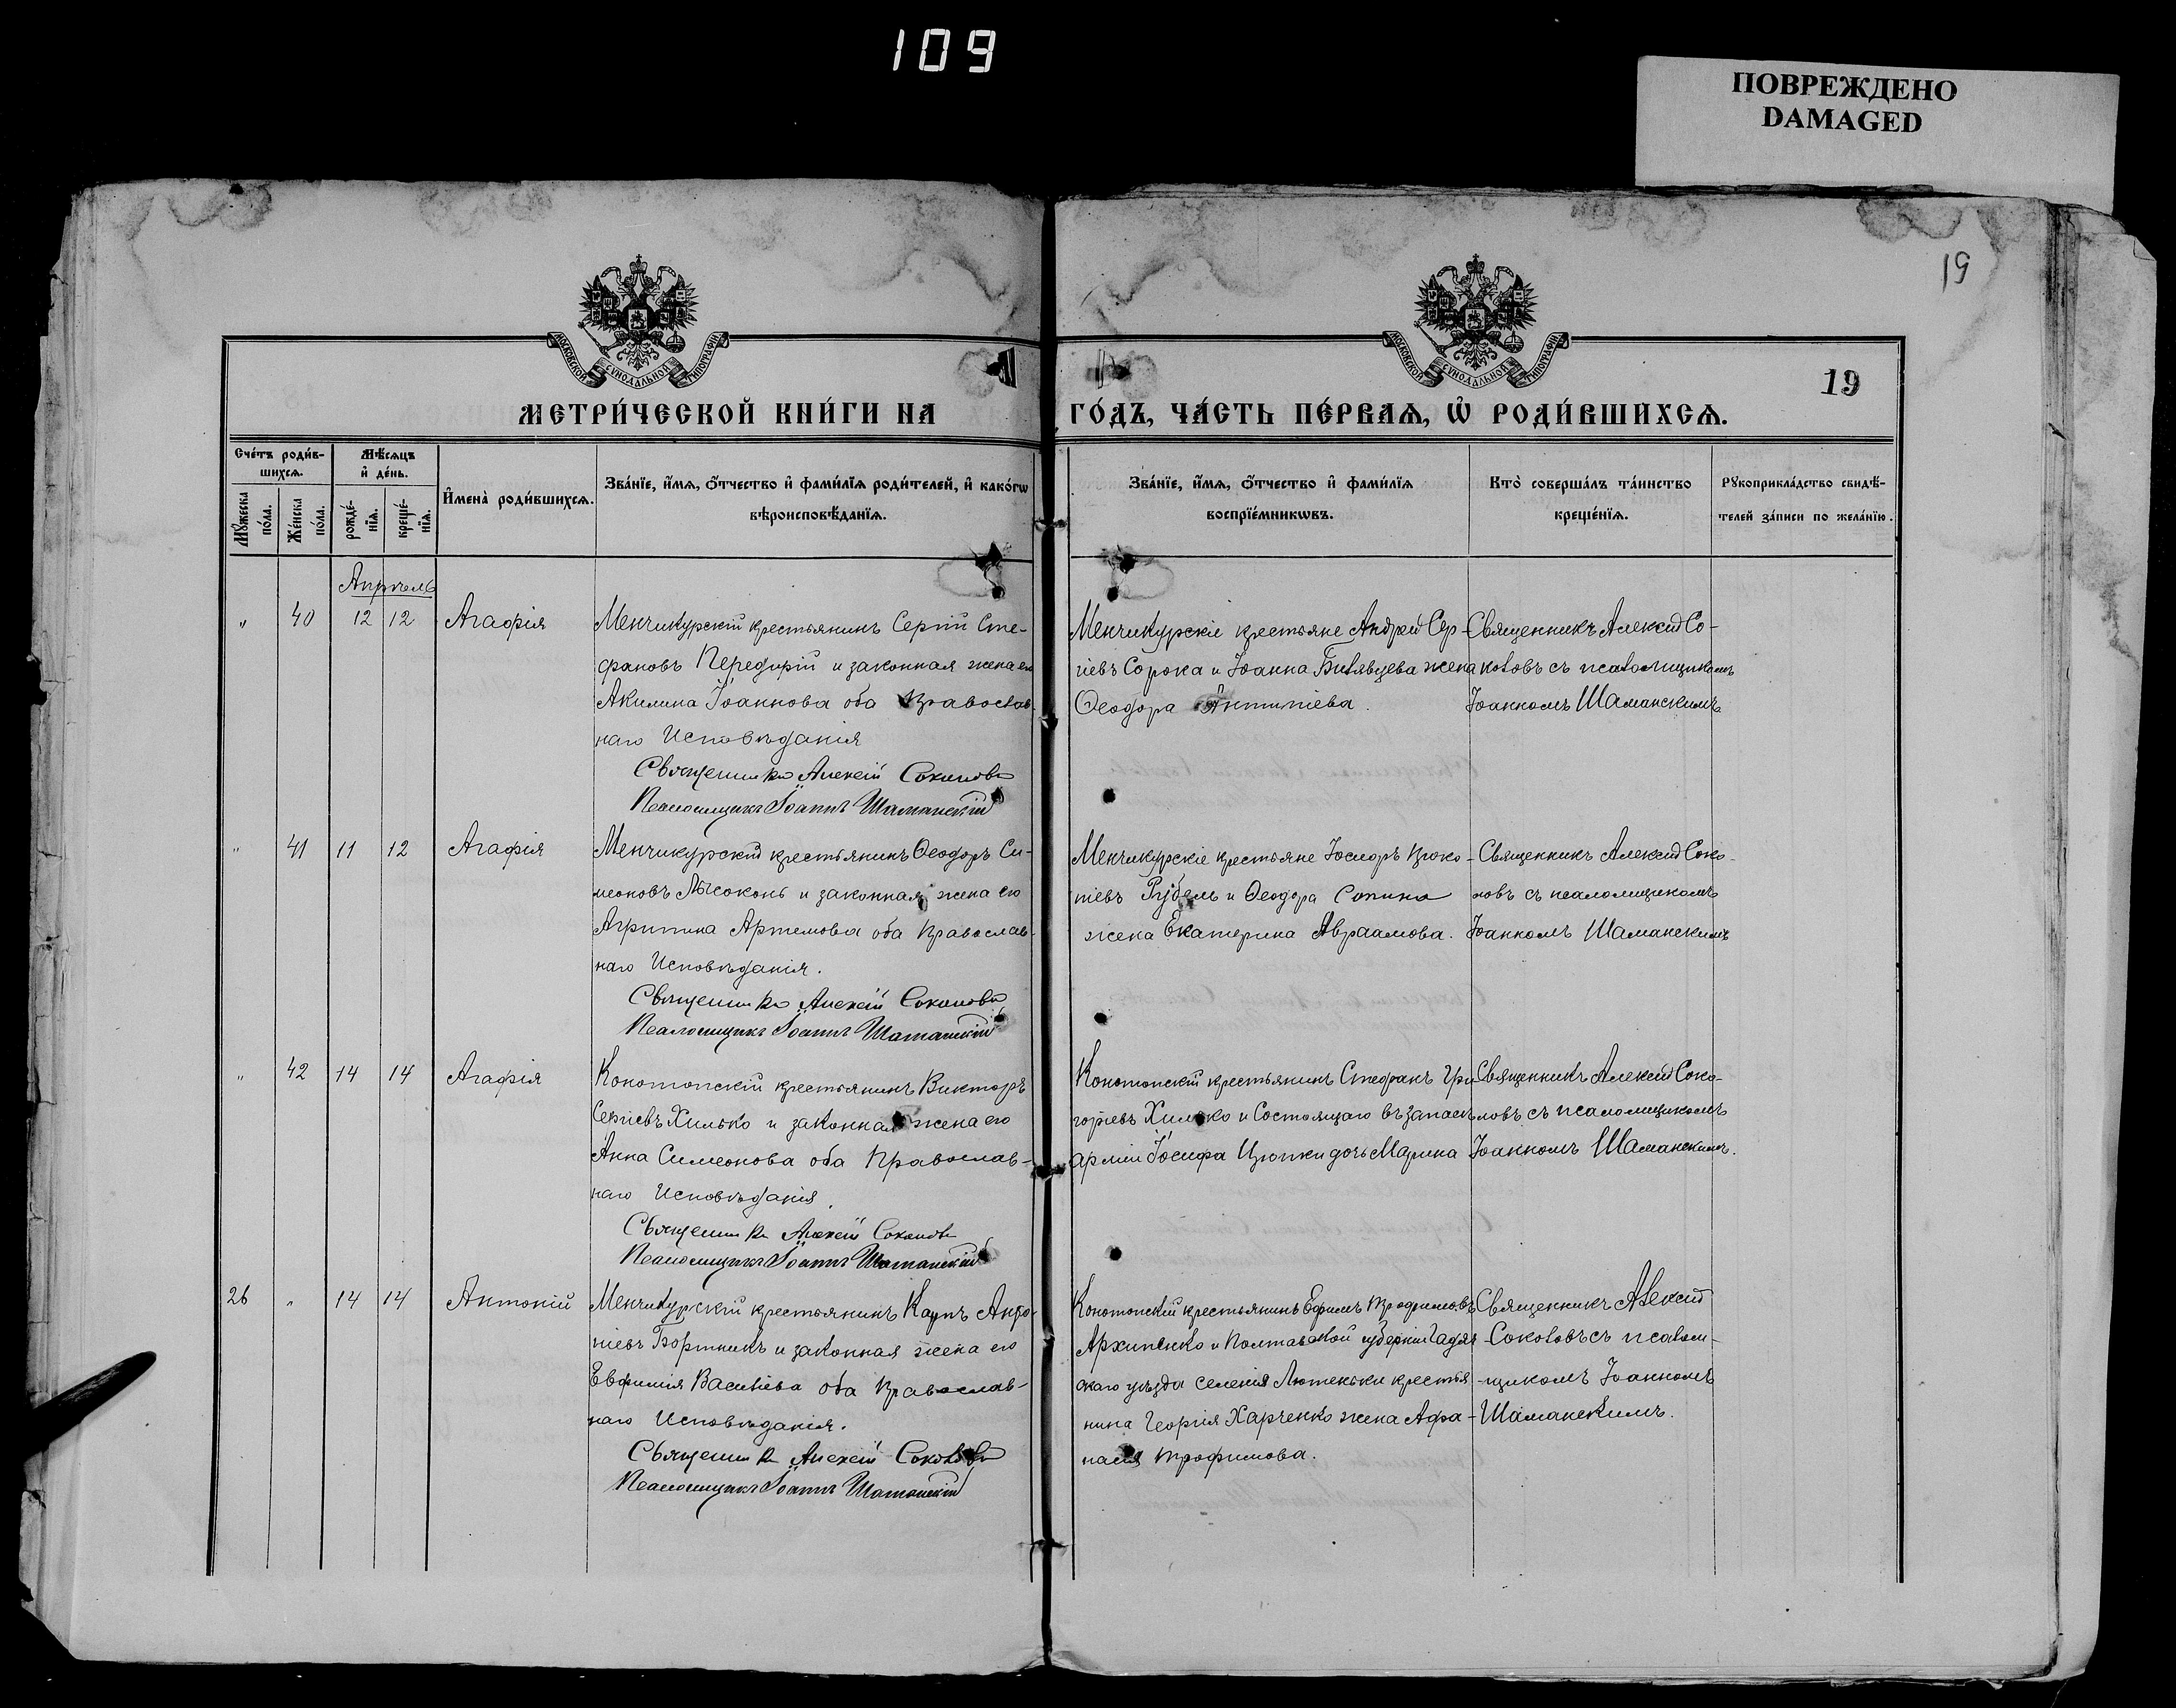 109
ПОВРЕЖДЕНО
DAMAGED
19
МОСКОВСКОЙ СѴНОДАЛЬНОЙ ТИПОГРАФІИ
МОСКОВСКОЙ СѴНОДАЛЬНОЙ ТИПОГРАФІИ
19
МЕТРИ́ЧЕСКОЙ КНИ́ГИ НА
ГО́ДЪ, ЧА́СТЬ ПЕ́РВАѦ, Ѽ РОДИ́ВШИХСѦ.
Сче́тъ роди́в-
шихсѧ.
Мꙋ́жеска по́ла.
Же́нска по́ла.
Мѣ́сѧцъ
и҆ де́нь.
рожде́-
нїѧ.
креще́-
нїѧ.
И҆мена̀ роди́вшихсѧ.
Зва́нїе, и҆́мѧ, ѻ҆́тчество и҆ фами́лїѧ роди́телей, и҆ како́гѡ
вѣроисповѣ́данїѧ.
Зва́нїе, и҆́мѧ, ѻ҆́тчество и҆ фами́лїѧ
воспрїе́мникѡвъ.
Кто̀ соверша́лъ та́инство
креще́нїѧ.
Рꙋкоприкла́дство свидѣ́-
телей за́писи по жела́нїю.
Апрѣль
" 40 12 12 Агафія
Менчикурскій крестьянинъ Сергій Сте-
фановъ Передирій и законная жена его
Акилина Іоаннова оба Православ-
наго Исповѣданія
Священникъ Алексій Соколовъ
Псаломщикъ Іоаннъ Шаманскій
Менчикурскіе крестьяне Андрей Сер-
гіевъ Сорока и Іоанна жена
Ѳеодора
Священникъ Алексій Со-
коловъ съ псаломщикомъ
Іоанномъ Шаманскимъ
" 41 11 12 Агафія
Менчикурскій крестьянинъ Ѳеодоръ Си-
меоновъ Лысоконь и законная жена его
Агрипина Артемова оба Православ-
наго Исповѣданія.
Священникъ Алексій Соколовъ
Псаломщикъ Іоаннъ Шаманскій
Менчикурскіе крестьяне Проко-
піевъ Рубель и Ѳеодора
жена Екатерина Авраамова.
Священникъ Алексій Соко-
ловъ съ псаломщикомъ
Іоанномъ Шаманскимъ
" 42 14 14 Агафія
Конотопскій крестьянинъ Викторъ
Сергіевъ Хилько и законная жена его
Анна Симеонова оба Православ-
наго Исповѣданія.
Священникъ Алексій Соколовъ
Псаломщикъ Іоаннъ Шаманскій
Конотопскій крестьянинъ Стефанъ Гри-
горіевъ Хилько и Состоящаго въ запасѣ
арміи Іосифа Цюпки дочь Марина
Священникъ Алексій Соко-
ловъ съ псаломщикомъ
Іоанномъ Шаманскимъ.
26 " 14 14 Антоній
Менчикурскій крестьянинъ Карпъ Анто-
ніевъ Бортникъ и законная жена его
Евфимія Васильева оба Православ-
наго Исповѣданія.
Священникъ Алексій Соколовъ
Псаломщикъ Іоаннъ Шаманскій
Конотопскій крестьянинъ Ефимъ Трофимовъ
Архипенко и Полтавской губерніи Гадяч-
скаго уѣзда селенія Лютеньки крестья-
нина Георгія Харченко жена Афа-
насія Трофимова.
Священникъ Алексій
Соколовъ съ псалом-
щикомъ Іоанномъ
Шаманскимъ.